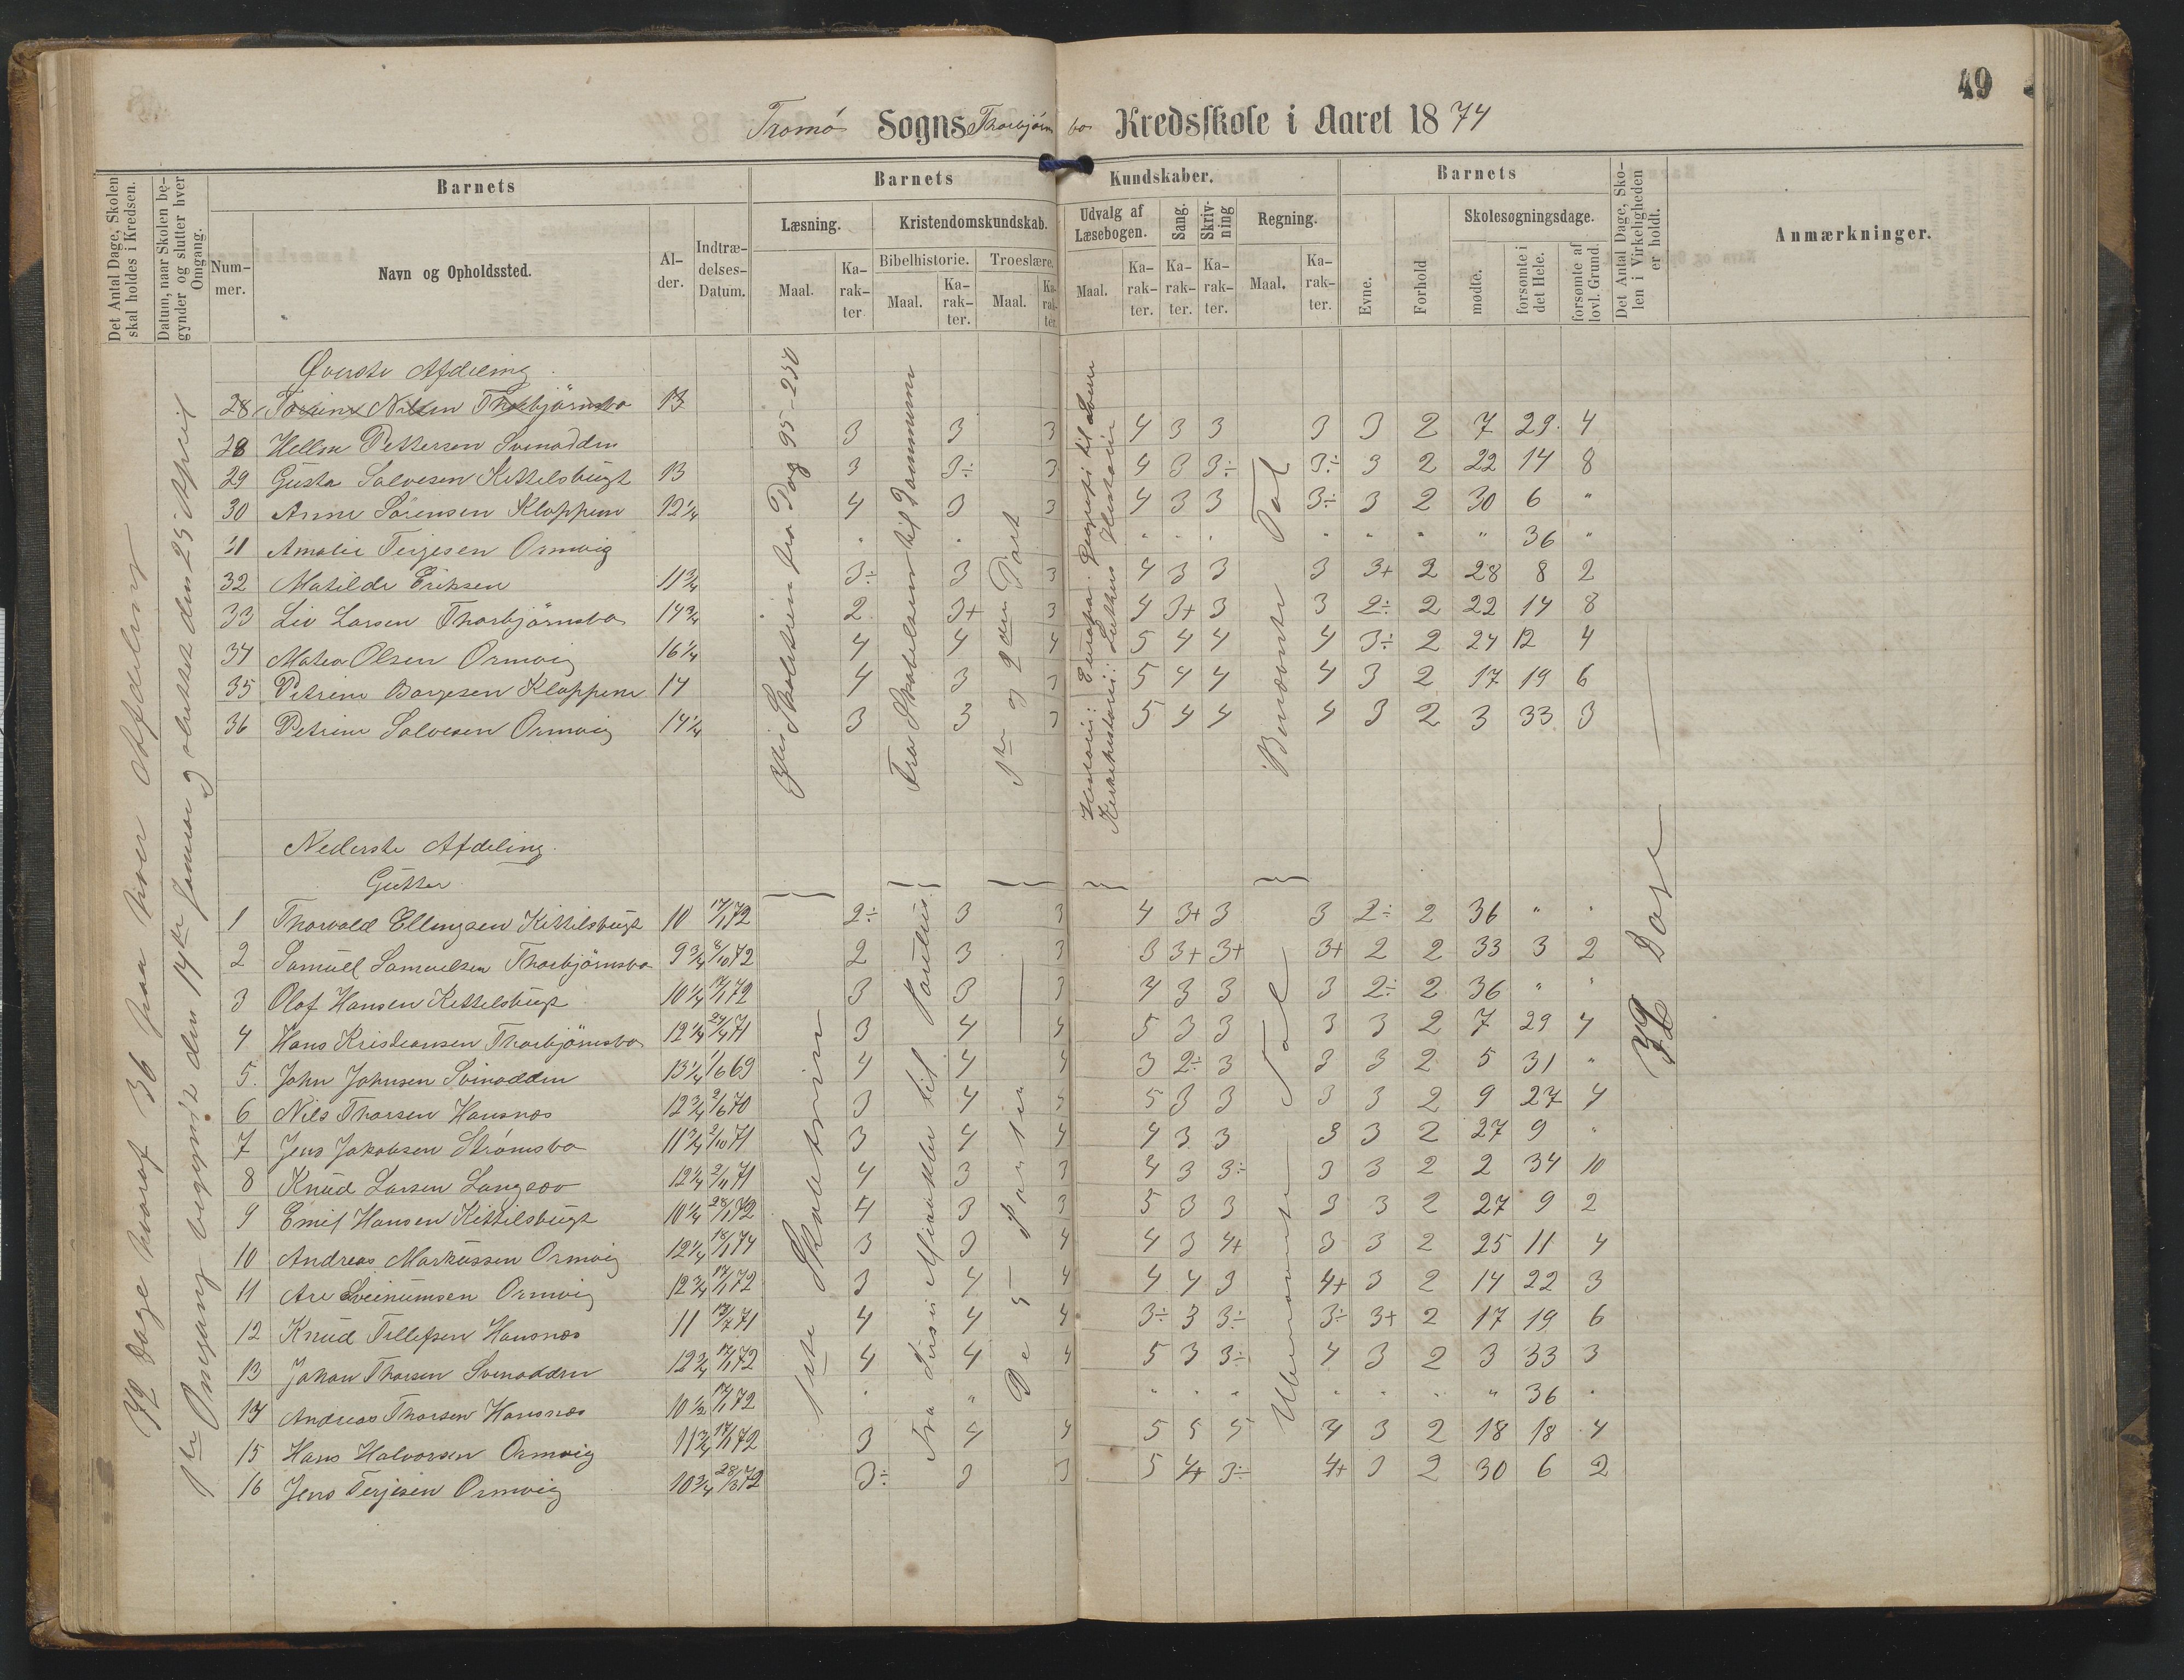 49
Tromø Sogns Thorbjörnsbo Kredsskole i Aaret 1874
Det Antal Dage, Skolen skal holdes i Kredsen.
Datum, naar Skolen begynder og slutter hver Omgang.
Barnets
Barnets Kundskaber.
Barnets
Det Antal Dage, Skolen i Virkeligheden er holdt.
Anmærkninger.
Nummer.
Navn og Opholdssted.
Alder.
Indtrædelses-Datum.
Læsning.
Kristendomskundskab.
Udvalg af Læsebogen.
Sang.
Skrivning
Regning.
Evne.
Forhold
Skolesøgningsdage.
Bibelhistorie.
Troeslære.
Maal.
Karakter.
mødte.
forsømte i det Hele.
forsømte af lovl. Grund.
72 Dage hvoraf 36 paa hver Afdeling
1ste Omgang begyndt den 14de Januar og sluttet den 25 April
Øverste Afdeling.
28 Torine Nilsen Thorbjörnsbo 13
28 Hellene Pettersen Svinodden 3 3 3 4 3 3 3 3 2 7 29 4
29 Gusta Salvesen Kittelsbugt 13 3 3÷ 3 4 3 3÷ 3÷ 3 2 22 14 8
30 Anne Sörensen Kloppene 12 1/4 4 3 3 4 3 3 3÷ 3 2 30 6 "
31 Amalie Terjesen Ormvig " " " " " " " " " 36 "
32 Matilde Eriksen 11 3/4 3÷ 3 3 4 3 3 3 3+ 2 28 8 2
33 Liv Larsen Thorbjörnsbo 14 3/4 2 3+ 3 4 3+ 3 3 2÷ 2 22 14 8
34 Matea Olsen Ormvig 16 1/4 4 4 4 5 4 4 4 3÷ 2 24 12 4
35 Petrine Borgesen Kloppene 14 4 3 3 5 4 4 4 3 2 17 19 6
36 Petrine Salvesen Ormvig 14 1/4 3 3 3 5 4 4 4 3 2 3 33 3
Skoletrin fra Pag 95-230
Fra Skabelsen til Dommerne
1ste og 2den Part
Historie: Europa. Geografi til
Kirkehistorie: Luthers Historie
Benævnte Tal
Nederste Afdeling.
Gutter
1 Thorvald Ellingsen Kittilsbugt 10 17/1 72 2÷ 3 3 4 3+ 3 3 2÷ 2 36 " "
2 Samuel Samuelsen Thorbjörnsbo 9 3/4 8/10 72 2 3 3 3 3+ 3+ 3+ 2 2 33 3 2
3 Olaf Hansen Kittelsbugt 10 1/4 17/1 72 3 3 3 4 3 3 3 2÷ 2 36 " "
4 Hans Kristiansen Thorbjörnsbo 12 1/4 24/4 71 3 4 4 5 3 3 3 3 2 7 29 4
5. John Johnsen Svinodden 13 1/4 1/6 69 4 4 4 3 2÷ 3 3 3 2 5 31 "
6 Nils Thorsen Hausnæs 12 3/4 2/6 70 3 4 4 5 3 3 3 3 2 9 27 4
7 Jens Jakobsen Strömsbo 11 3/4 2/10 71 3 4 4 4 3 3 3 3 2 27 9 "
8 Knud Larsen Langsæv 12 1/4 2/11 71 4 3 3 4 3 3÷ 3 3 2 2 34 10
9 Emil Hansen Kittilsbugt 10 1/4 28/1 72 4 3 3 5 3 3 3 3 2 27 9 2
10 Andreas Markussen Ormvig 12 1/4 18/1 74 3 3 4 4 3 4+ 3 3 2 25 11 4
11 Are Sveinumsen Ormvig 12 3/4 17/1 72 3 4 4 4 4 3 4+ 3 2 14 22 3
12 Knud Tellefsen Hausnæs 11 13/7 71 4 4 4 3÷ 3 3÷ 3÷ 3+ 2 17 19 6
13 Johan Thorsen Svinodden 12 3/4 17/1 72 4 4 4 5 3 3÷ 4 3 2 3 33 3
14 Andreas Thorsen Hausnæs 10 1/2 17/1 72 " " " " " " " " " 36 "
15 Hans Halvorsen Ormvig 11 3/4 17/1 72 3 4 4 5 5 5 4 3 2 18 18 4
16 Jens Terjesen Ormvig 10 3/4 28/3 72 3÷ 3 3 5 4+ 3÷ 4+ 3 2 30 6 2
1ste Skoletrin
Fra Jesu Mirakler til Paulus
De 5 Parter
Ubenævnte Tal
72 Dage